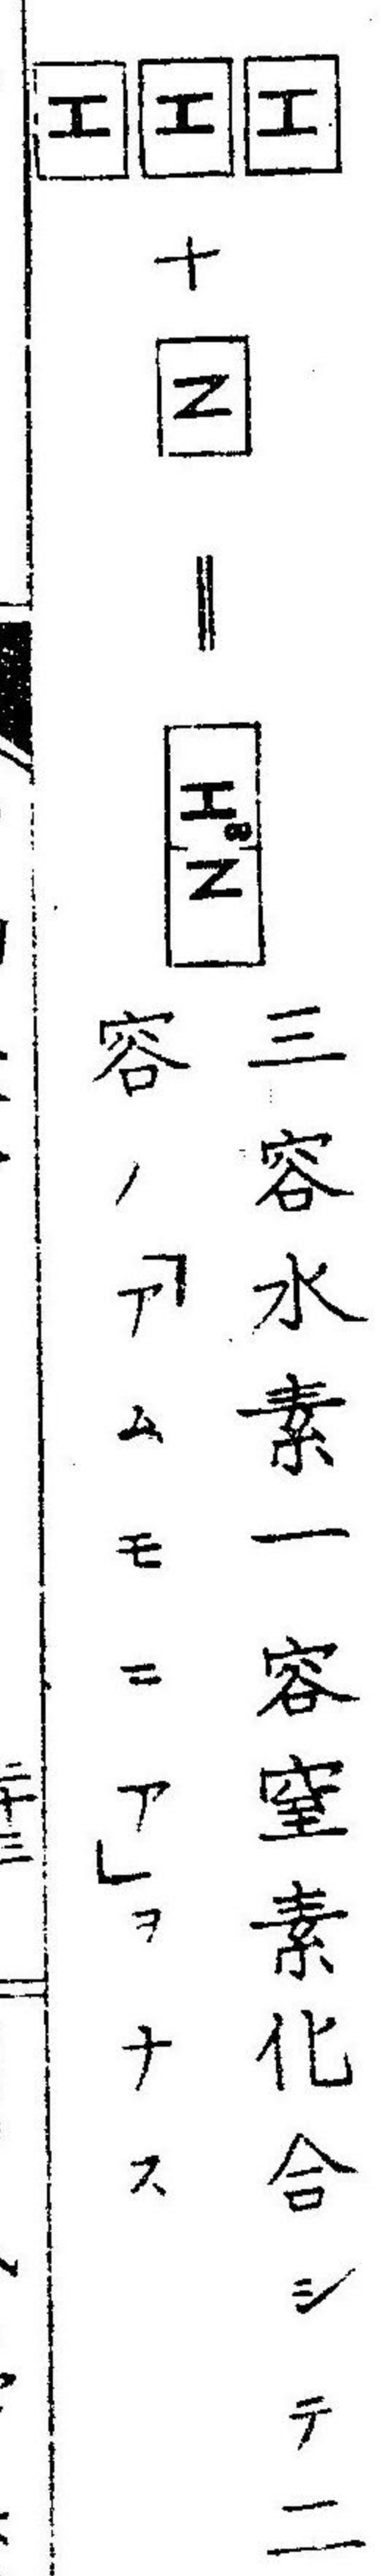 H H H + N = H³N
三容水素一容窒素化合シテ二
容ノ「アムモニア」ヲナス
二十三